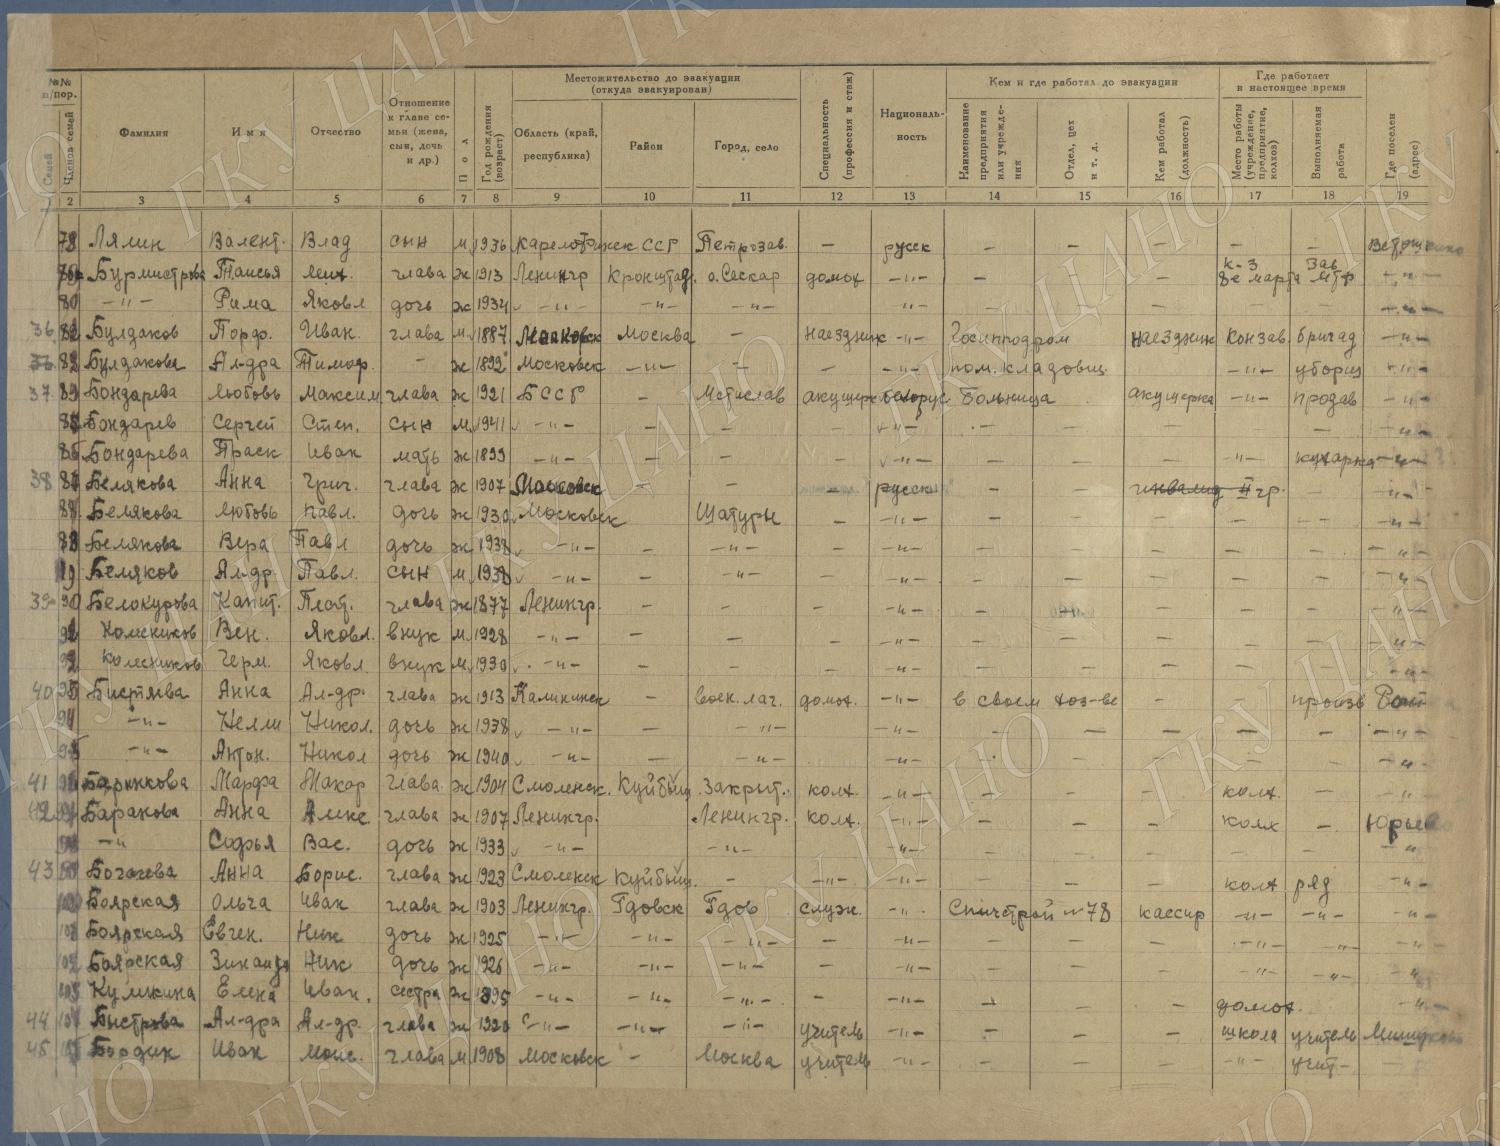 №№ п/пор.
Семей
Членов семей
Фамилия
Имя
Отчество
Отношение к главе семьи (жена, сын, дочь и др.)
Пол
Год рождения (возраст)
Местожительство до эвакуации (откуда эвакуирован)
Область (край, республика)
Район
Город, село
Специальность (профессия и стаж)
Националь-ность
Кем и где работал до эвакуации
Наименование предприятия или учрежде-ния
Отдел, цех и т. д.
Кем работал (должность)
Где работает в настоящее время
Место работы (учреждение, предприятие, колхоз)
Выполняемая работа
Где поселен (адрес)
1 2 3 4 5 6 7 8 9 10 11 12 13 14 15 16 17 18 19
78 Лялин Валент. Влад сын м 1936 Карелофинск ССР Петрозав. — русск — — — — —
79 Бурмистрова Таисья глава ж 1913 Ленингр Кронштад. о. Сескар домох —"— — — к-з 8е марта Зав. МТФ —"—
80 —"— Рима Яковл дочь ж 1934 —"— —"— —"— —"— —"—
36 Булдаков Порф. Иван. глава м 1887 Московск Москва — наездник —"— Госипподром наездник Конзав. бригад —"—
Булдакова Ал-дра Тимоф. — ж 1892 Московск —"— — — —"— пом. кладовщ. —"— уборщ —"—
37 Бондарева Любовь Максим глава ж 1921 БССР — Мстислав акушерк белорус Больница акушерка —"— продав —"—
Бондарев Сергей Степ. сын м 1941 —"— — — — —"— — — — — —"—
Бондарева Праск Иван мать ж 1899 —"— — — — —"— — — — —"— кухарка —"—
38 Белякова Анна Григ. глава ж 1907 Московск — — — русск инвалид II гр. — —"—
Белякова Любовь Павл. дочь ж 1930 Московск Шатуры — —"— — — — — — —"—
Белякова Вера Павл дочь ж 1938 —"— — —"— — —"— — — — — — —"—
Беляков Ал-др. Павл. сын м 1938 —"— — —"— — —"— — — — — — —"—
39 90 Белокурова Капит. Плат. глава ж 1877 Ленингр. — — — —"— — — — — —"—
Колесников Вен. Яковл. внук м 1928 —"— — — — —"— — — — — — —"—
Колесников Герм. Яковл. внук м 1930 —"— — — — —"— — — — — — —"—
40 Анна Ал-др. глава ж 1913 Калининск — воен. лаг. домох. —"— в своем хоз-ве —
—"— Нелли Никол. дочь ж 1938 —"— —"— —"— — — — — — —"—
—"— Антон. Никол дочь ж 1940 —"— —"— —"— — — — — — —"—
41 Баринкова Марфа Макар глава ж 1904 Смоленск. Куйбыш. Закрыт. колх. —"— — — — колх. — —"—
42 Баранова Анна Алекс. глава ж 1907 Ленингр. Ленингр. колх. —"— — — — колх —
—"— Софья Вас. дочь ж 1933 —"— —"— —"— — — — — —"—
43 Анна Борис. глава ж 1923 Смоленск Куйбыш. — —"— —"— — — — колх ряд —"—
Боярская Ольга Иван глава ж 1903 Ленингр. Гдовск Гдов служ. —"— №78 кассир —"— —"— —"—
Боярская Евген. Ник дочь ж 1925 —"— —"— —"— — —"— — — — —"— —"— —"—
102 Боярская Зинаида Ник дочь ж 1926 —"— —"— —"— — —"— — — — —"— —"— —"—
Елена Иван. сестра ж 1895 —"— —"— —"— — —"— — — — домох. —"—
44 Быстрова Ал-дра Ал-др. глава ж 1920 —"— —"— —"— учитель —"— — — — школа учитель
45 Бордик Иван Моис. глава м 1908 Московск — Москва учитель —"— — — — —"— учит- —"—
ГКУ ЦАНО